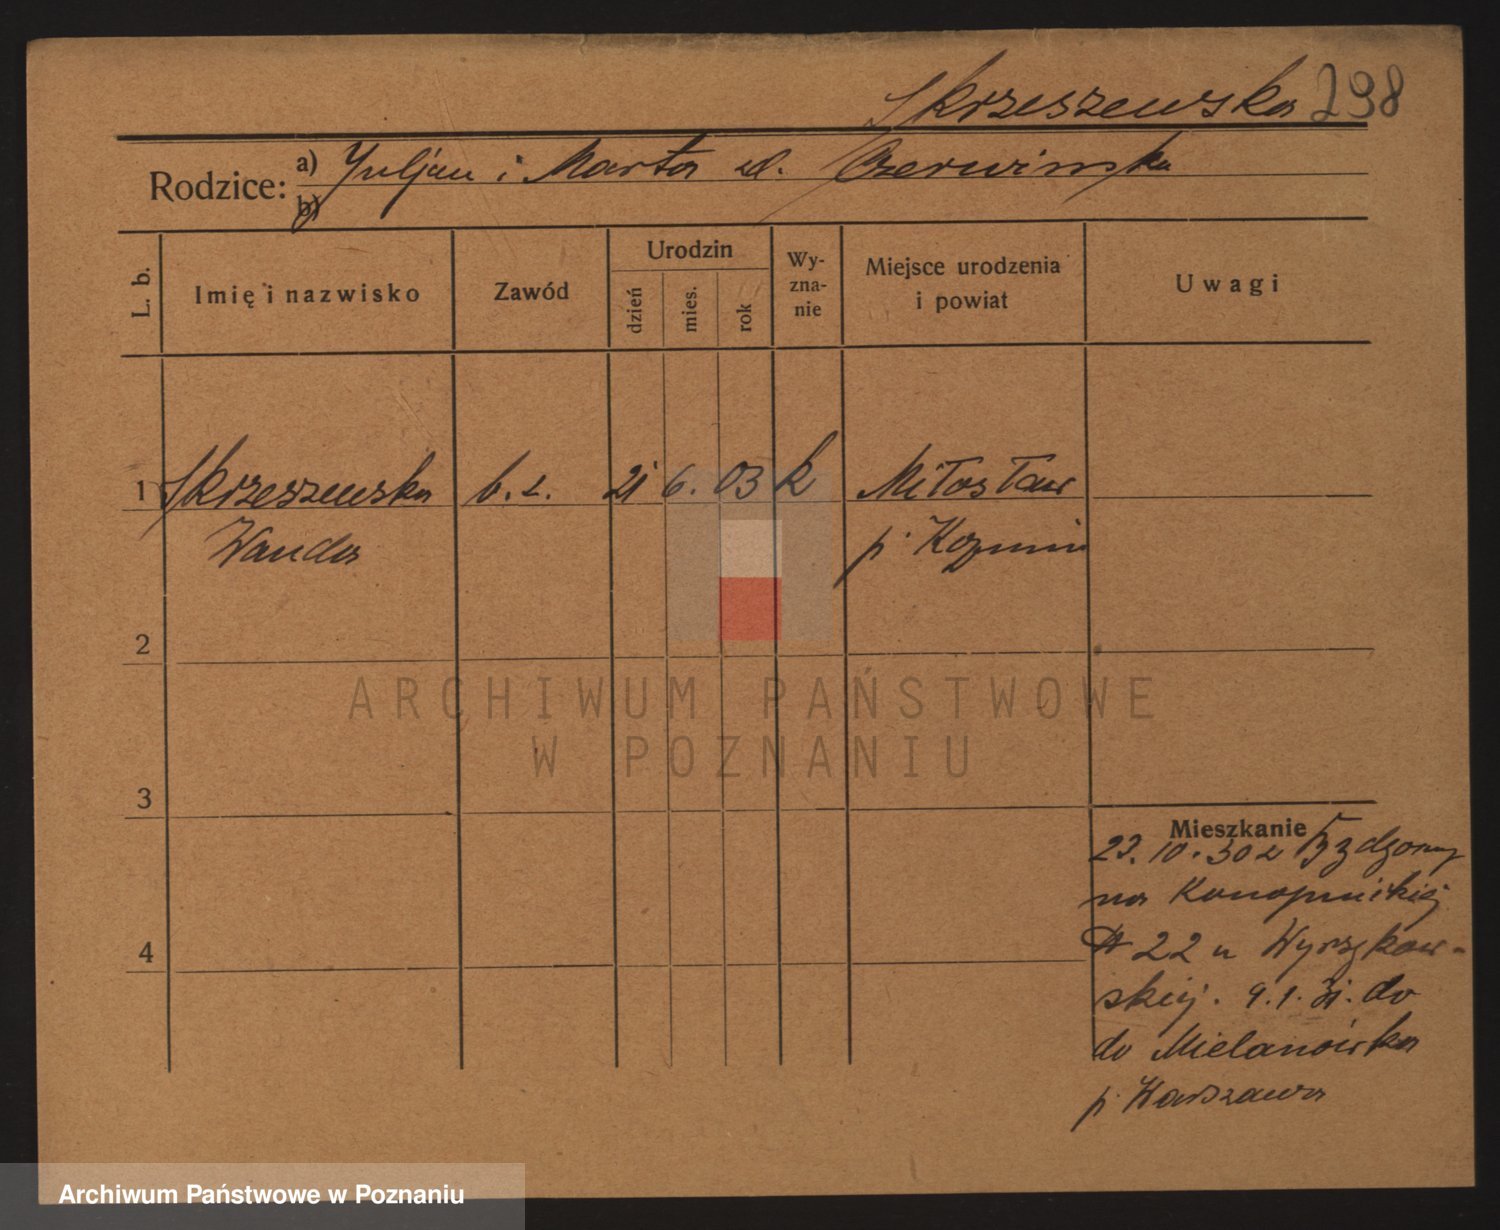 Skrzeszewska 298
Rodzice: a) Juljan i Marta zd. Czerwinska
b)
L. b.
Imię i nazwisko
Zawód
Urodzin
dzień
mies.
rok
Wy-
zna-
nie
Miejsce urodzenia
i powiat
Uwagi
1 Skrzeszewska b. z. 21 6. 03 k Miłosław
Wanda p. Kozmin
2
ARCHIWUM PAŃSTWOWE
W POZNANIU
3
Mieszkanie
23. 10. 30 z
na Konopnickiej
22 u Wyrzykow-
skiej. 9.1.31. do
do Mielanówka
p. Warszawa
4
Archiwum Państwowe w Poznaniu